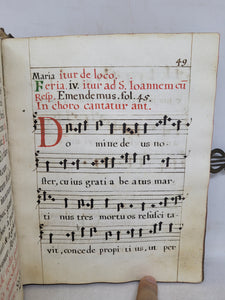 49
Maria itur de loco.
Feria. iv. itur ad S. Ioannem cũ
Resp. Emendemus. fol. 45.
In choro cantatur ant.
Do mine de us no
ster, cu ius grati a be a tus mar
ti nus tres mortu os re su sci ta
vit, con ce de pro pi ti us, ut per